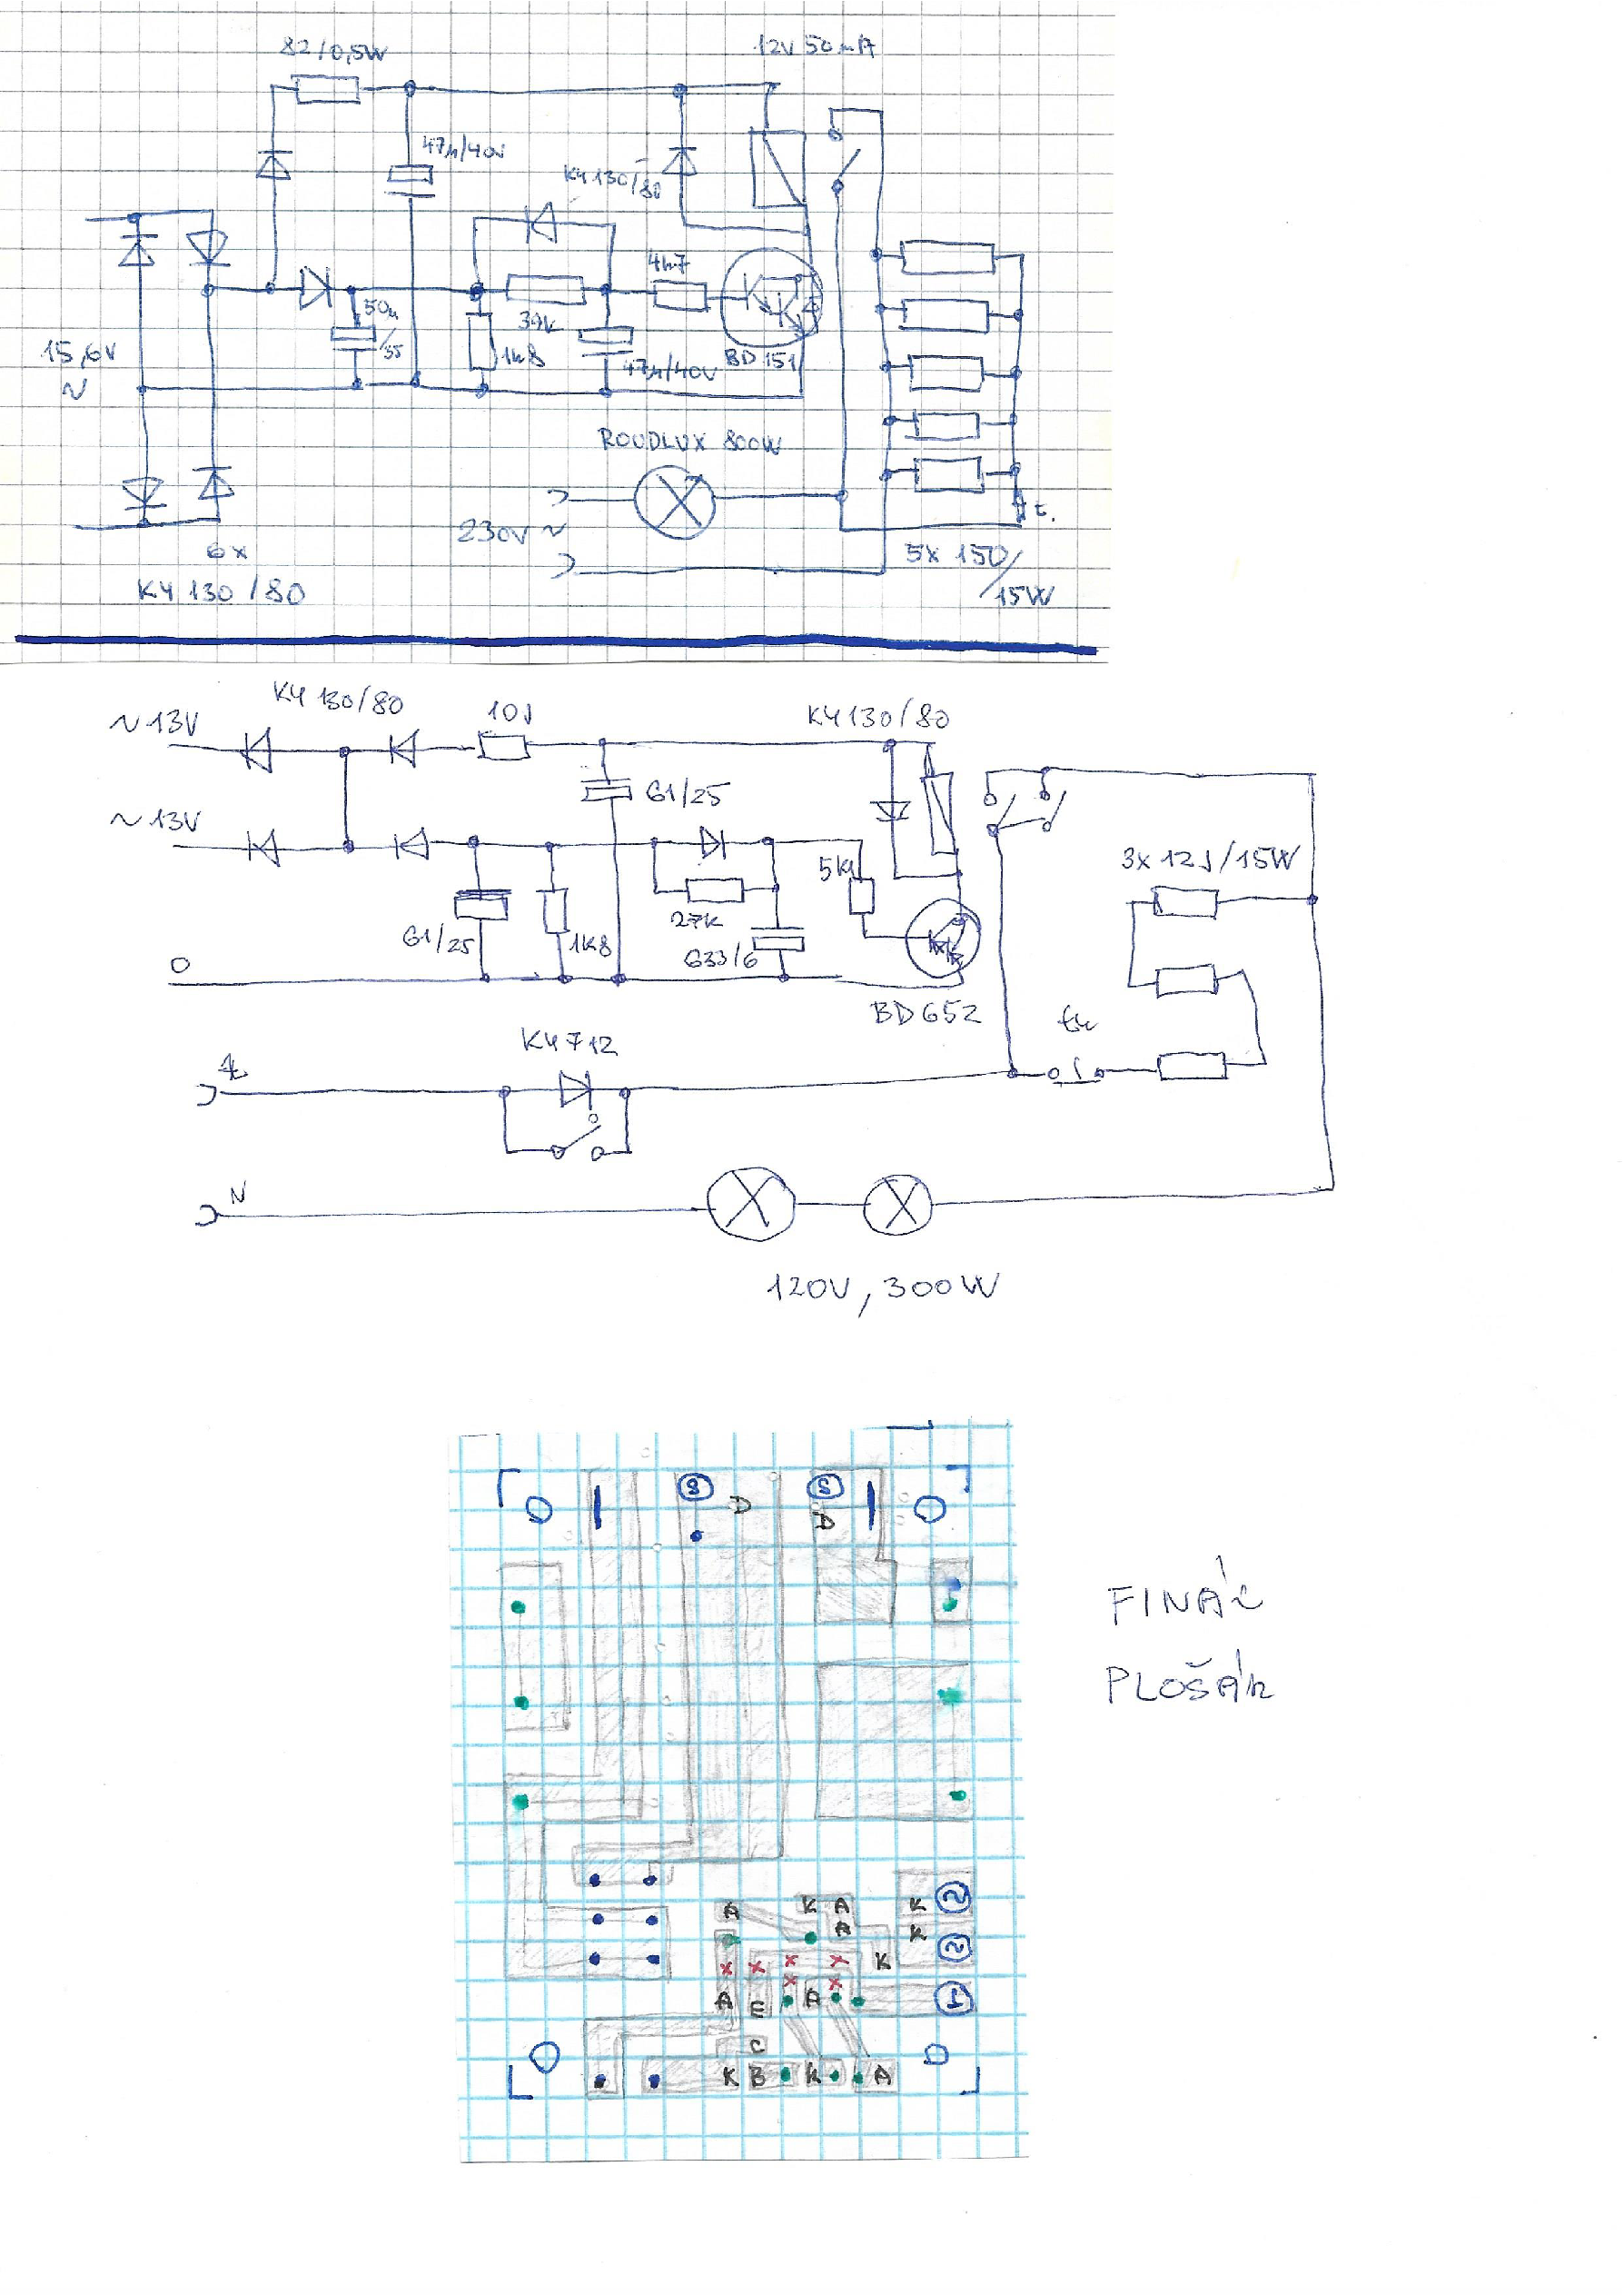 82/0,5W
12V 50mA
47µ/40V
KY130/80
4k7
50µ
/35
39k
1k8
15,6V
~
47µ/40V
BD 151
ROUDLUX 800W
230V ~
t.
6x
KY 130/80
5x 150/
15W
KY 130/80
~13V
10J
KY130/80
G1/25
~13V
3x 12J/15W
5k1
27k
G1/25
1k8
G33/6
0
BD652
KY712
N
120V, 300W
S
S
D
D
FINÁL
PLOŠÁK
A
K
A
K
2
A
K
x
x
x
x
K
2
x
x
A
E
A
1
C
K
B
K
A